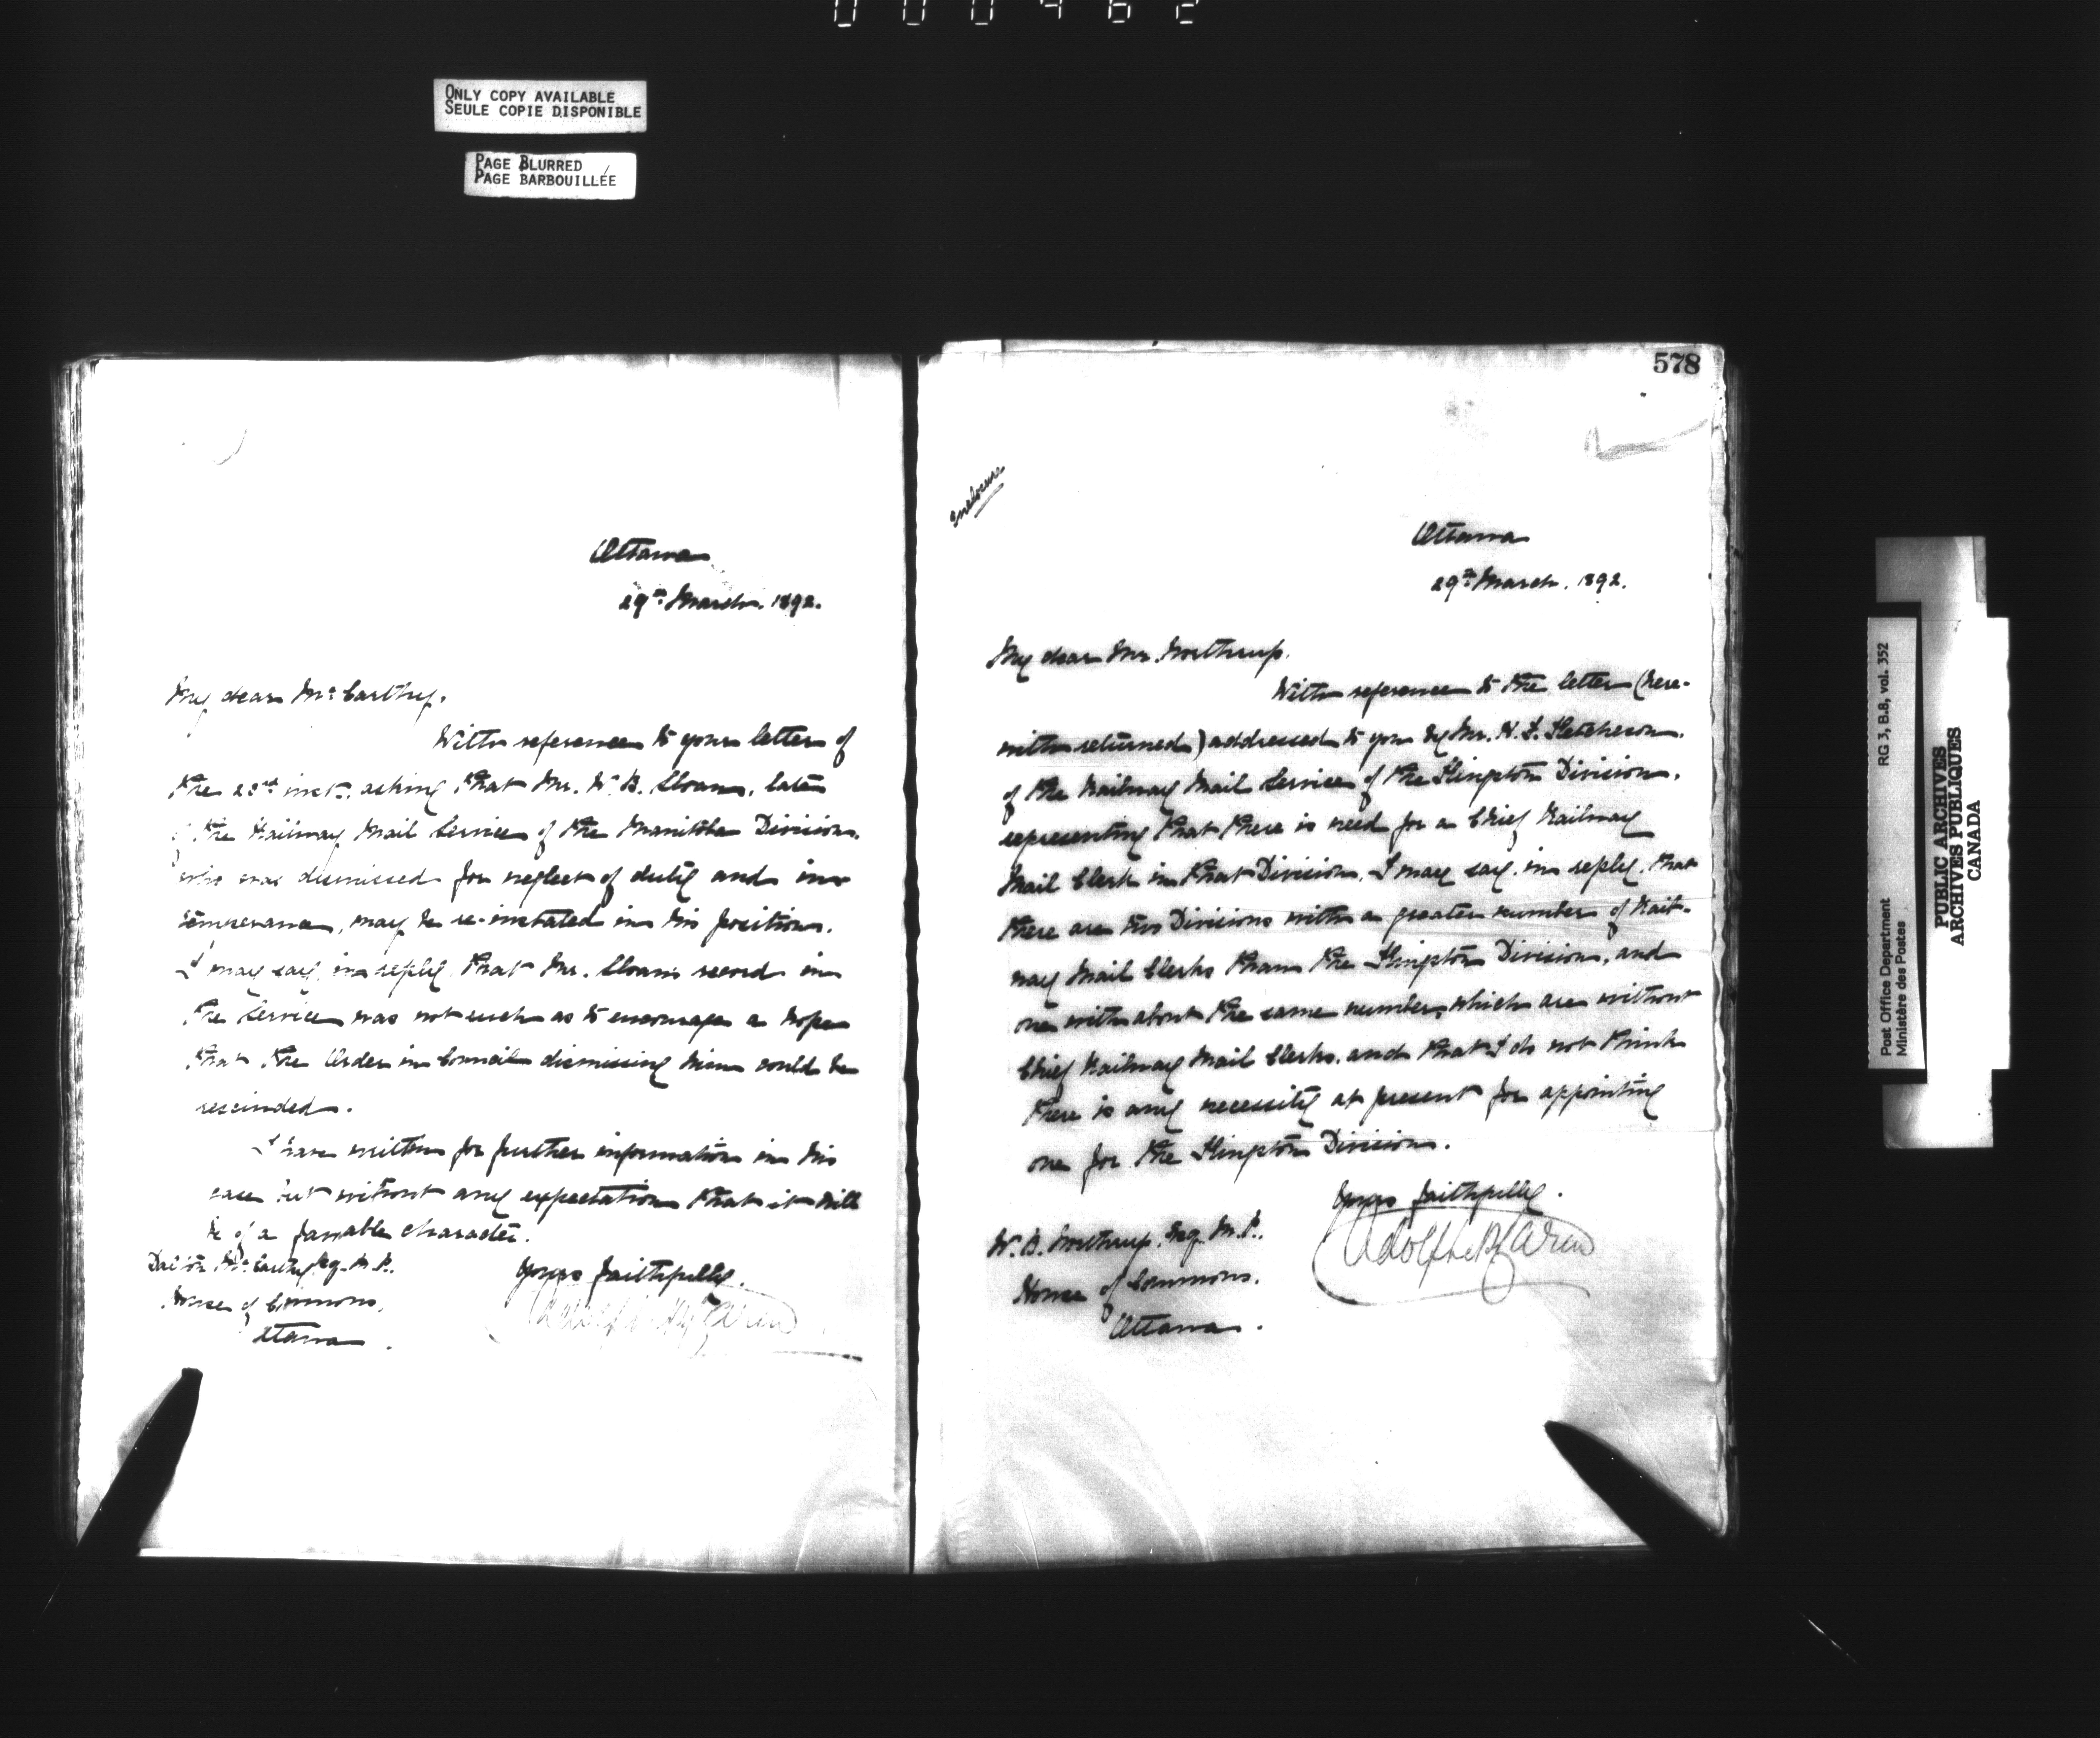 000462
ONLY COPY AVAILABLE
SEULE COPIE DISPONIBLE
PAGE BLURRED
PAGE BARBOUILLÉE
Ottawa
29th March. 1892.
My dear McCarthy,
With reference to your letter of
the 23rd inst. asking that Mr. W. B. Sloan, late
of the Railway Mail Service of the Manitoba Division,
who was dismissed for neglect of duty and in-
temperance, may be re-instated in his position.
I may say, in reply, that Mr. Sloan's record in
the Service was not such as to encourage a hope
that the Order in Council dismissing him could be
rescinded.
I have written for further information in his
case but without any expectation that it will
be of a favorable character.
Yours faithfully.
Adolphe P. Caron
Dalton McCarthy, Esq. M.P.
House of Commons,
Ottawa.
578
Enclosure
Ottawa
29th March. 1892.
My dear Mr. Northrup.
With reference to the letter (here-
with returned) addressed to you by Mr. H. F. Ketcheson,
of the Railway Mail Service of the Kingston Division,
representing that there is need for a Chief Railway
Mail Clerk in that Division, I may say, in reply, that
there are two Divisions with a greater number of Rail-
way Mail Clerks than the Kingston Division, and
one with about the same number, which are without
Chief Railway Mail Clerks, and that I do not think
there is any necessity at present for appointing
one for the Kingston Division.
Yours faithfully.
Adolphe P. Caron
W. B. Northrup, Esq. M.P.,
House of Commons,
Ottawa.
Post Office Department RG 3, B.8, vol. 352
Ministère des Postes
PUBLIC ARCHIVES
ARCHIVES PUBLIQUES
CANADA